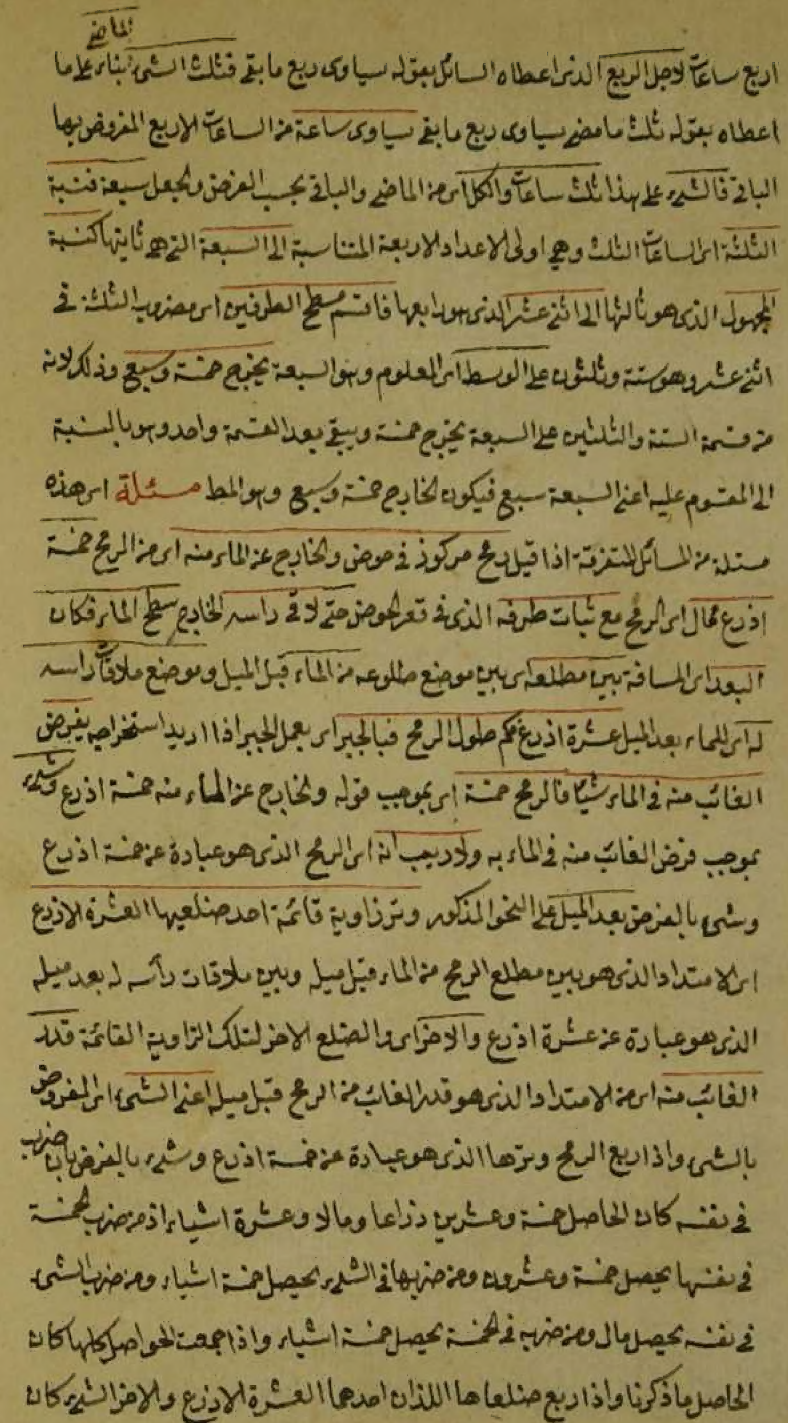 الماضي
اربع ساعات لاجل الربع الذى اعطاه السائل بقوله يساوى ربع ما بقى فثلث الشىء بناء على ما
اعطاه بقوله ثلث ما مضى يساوى ربع ما بقى يساوى ساعة من الساعات الاربع المفروض بها
الباقى فالشىء على هذا ثلث ساعات والكل اى من الماضى والباقى بحسب الفرض والجعل سبعة فنسبة
الثلثة اى الساعات الثلث وهى اولى الاعداد الاربعة المتناسبة الى السبعة التى هى ثانيتها كنسبة
المجهول الذى هو ثالثها الى اثنى عشر الذى هو رابعها فاقسم مسطح الطرفين اى مضروب الثلثة فى
اثنى عشر وهو ستة وثلثون على الوسط اى المعلوم وهو السبعة يخرج خمسة وسبع وذلك لانه
من قسمة الستة والثلثين على السبعة يخرج خمسة ويبقى بعد القسمة واحد وهو بالنسبة
الى المقسوم عليه اعنى السبعة سبع فيكون الخارج خمسة وسبع وهو المط مسئلة اى هذه
مسئلة من المسائل المتفرقة اذا قيل رمح مركوز فى حوض والخارج عن الماء منه اى من الرمح خمسة
اذرع فمال اى الرمح مع ثبات طرفه الذى فى قعر الحوض حتى لاقى راسه الخارج سطح الماء فكان
البعد اى المسافة بين مطلعه اى بين موضع طلوعه من الماء قبل الميل وموضع ملاقات راسه
له اى للماء بعد الميل عشرة اذرع فكم طول الرمح فبالجبر اى بعمل الجبر اذا اريد استخراجه يفرض
الغائب منه فى الماء شيئا فالرمح خمسة اى بموجب قوله والخارج عن الماء منه خمسة اذرع وشىء
بموجب فرض الغائب منه فى الماء به ولا ريب انه اى الرمح الذى هو عبارة عن خمسة اذرع
وشىء بالفرض بعد الميل على النحو المذكور وتر زاوية قائمة احد ضلعيها العشرة الاذرع
اى الامتداد الذى هو بين مطلع الرمح من الماء قبل ميله وبين ملاقات رأسه له بعد ميله
الذى هو عبارة عن عشرة اذرع والاخر اى والضلع الاخر لتلك الزاوية القائمة قدر
الغائب منه اى من الامتداد الذى هو قدر الغائب من الرمح قبل ميله اعنى الشىء اى المفروض
بالشىء واذا ربع الرمح وترها الذى هو عبارة عن خمسة اذرع وشىء بالفرض بان ضرب
فى نفسه كان الحاصل خمسة وعشرين ذراعا ومالا وعشرة اشياء اذ من ضرب الخمسة
فى نفسها يحصل خمسة وعشرون ومن ضربها فى الشىء يحصل خمسة اشياء ومن ضرب الشىء
فى نفسه يحصل مال ومن ضربه فى الخمسة يحصل خمسة اشياء واذا جمعت الحواصل كلها كان
الحاصل ما ذكرنا واذا ربع ضلعاها اللذان احدهما العشرة الاذرع والاخر الشىء كان